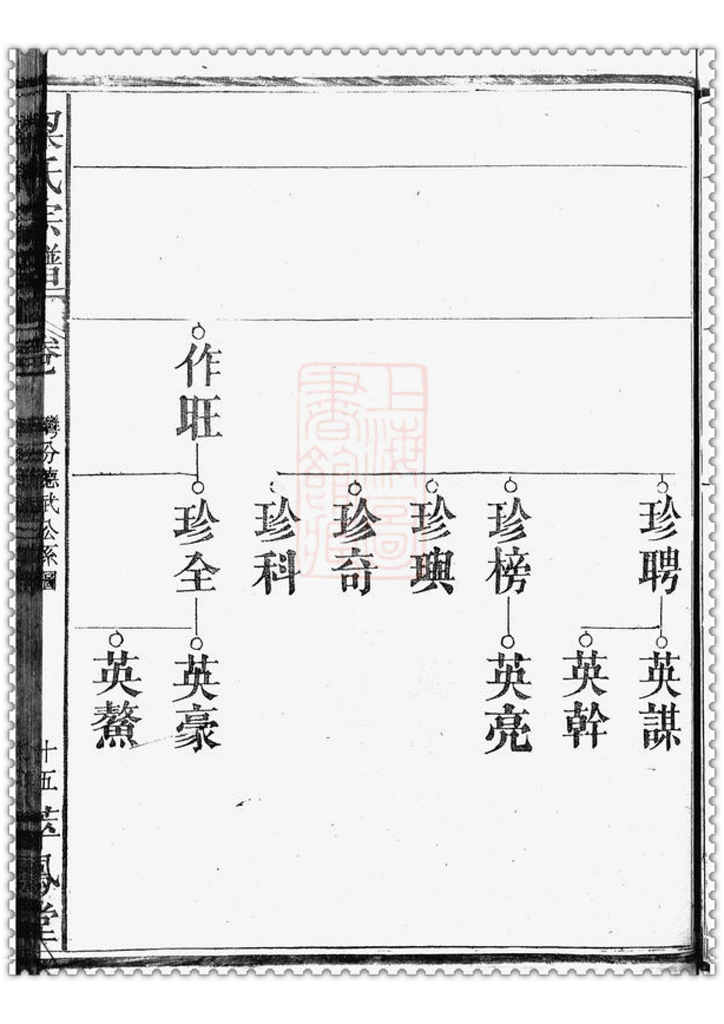 珍聘
英謀
英幹
珍榜
英亮
珍輿
珍奇
珍科
作旺
珍全
英豪
英鰲
上海圖書館藏
梁氏宗譜
卷一
灣分德武公系圖
十五